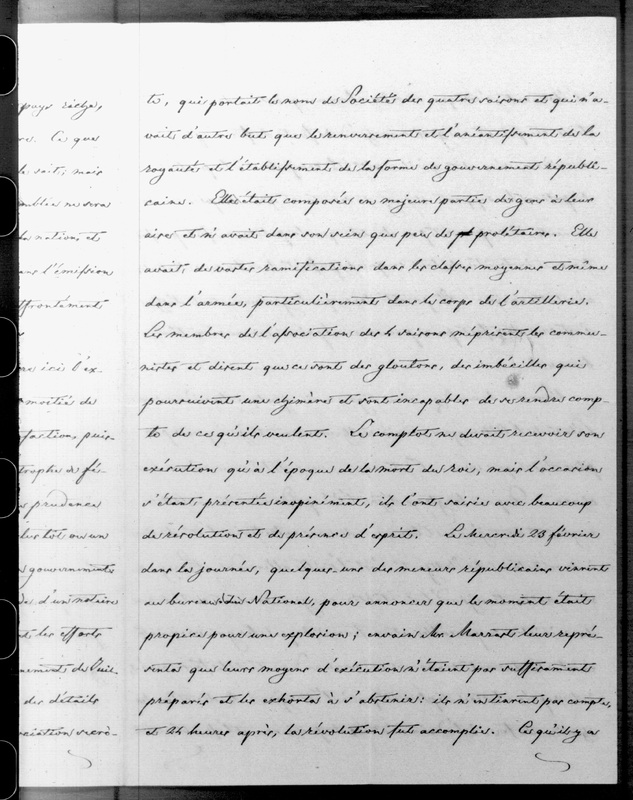 pays riche,
re. Ce que
le sait; mais
emblée ne sera
la nation, et
ans l'émission
ffrontément
re ici l'ex-
moitié de
faction, puis-
trophe de fé-
prudence
gouvernement
de d'un notaire
et les efforts
nement de Ouil-
des détails
ociation secrè-
te, qui portait le nom de Société des quatre saisons et qui n'a-
vait d'autre but que le renversement et l'anéantissement de la
royauté et l'établissement de la forme de gouvernement républi-
caine. Elle était composée en majeure partie de gens à leur
aise et n'avait dans son sein que peu de prolétaires. Elle
avait, de vastes ramifications dans les classes moyennes et même
dans l'armée, particulièrement dans le corps de l'artillerie.
Les membres de l'association des 4 saisons méprisent les commu-
nistes et disent que ce sont des gloutons, des imbécilles qui
poursuivent une chimère et sont incapables de se rendre comp-
te de ce qu'ils veulent. Le complot ne devait recevoir son
exécution qu'à l'époque de la mort du roi; mais l'occasion
s'étant présentée inopinément, ils l'ont saisie avec beaucoup
de résolution et de présence d'esprit. Le Mercredi 23 février
dans la journée, quelques-uns des meneurs républicains vinrent
au bureau du National, pour annoncer que le moment était
propice pour une explosion; envain Mr. Marrast leur repré-
senta que leurs moyens d'exécution n'étaient pas suffisamment
préparés et les exhorta à s'abstenir: ils n'en tinrent pas compte,
et 24 heures après, la révolution fut accomplie. Ce qu'il y a